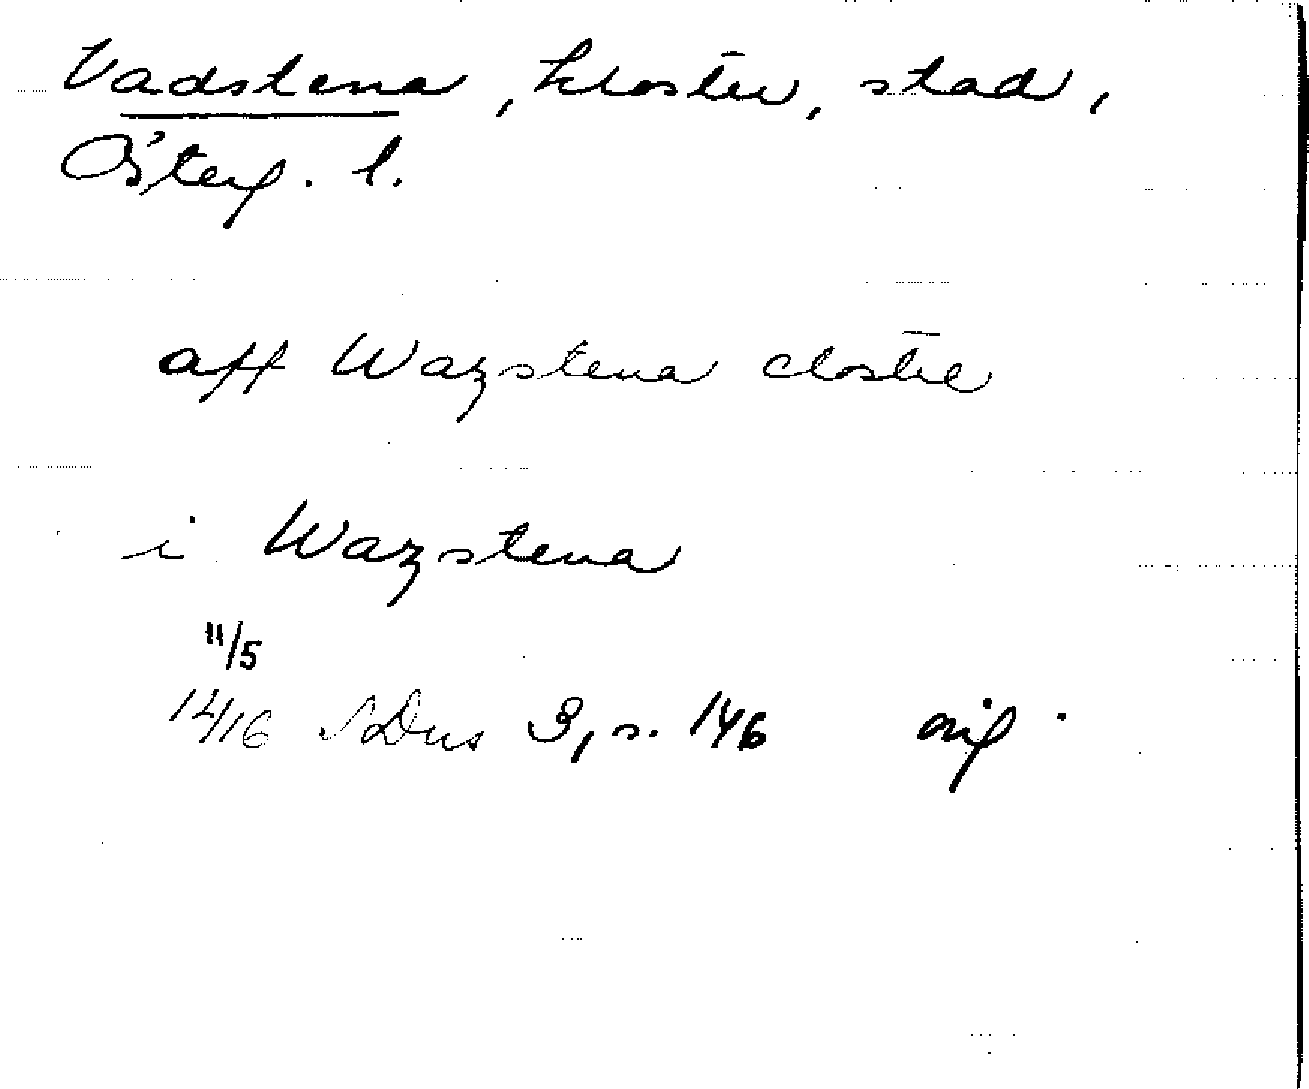 Vadstena, kloster, stad,
Österg. l.
aff Wazstena clostre
i Wazstena
11/5
1416 SDns 3, s. 146 orig.